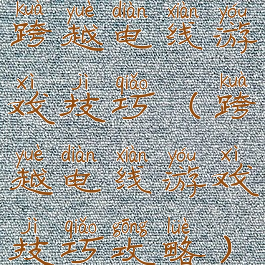 kuà yuè diàn xiàn yóu
跨越电线游
xì jì qiǎo kuà
戏技巧（跨
yuè diàn xiàn yóu xì
越电线游戏
jì qiǎo gōng lüè
技巧攻略）